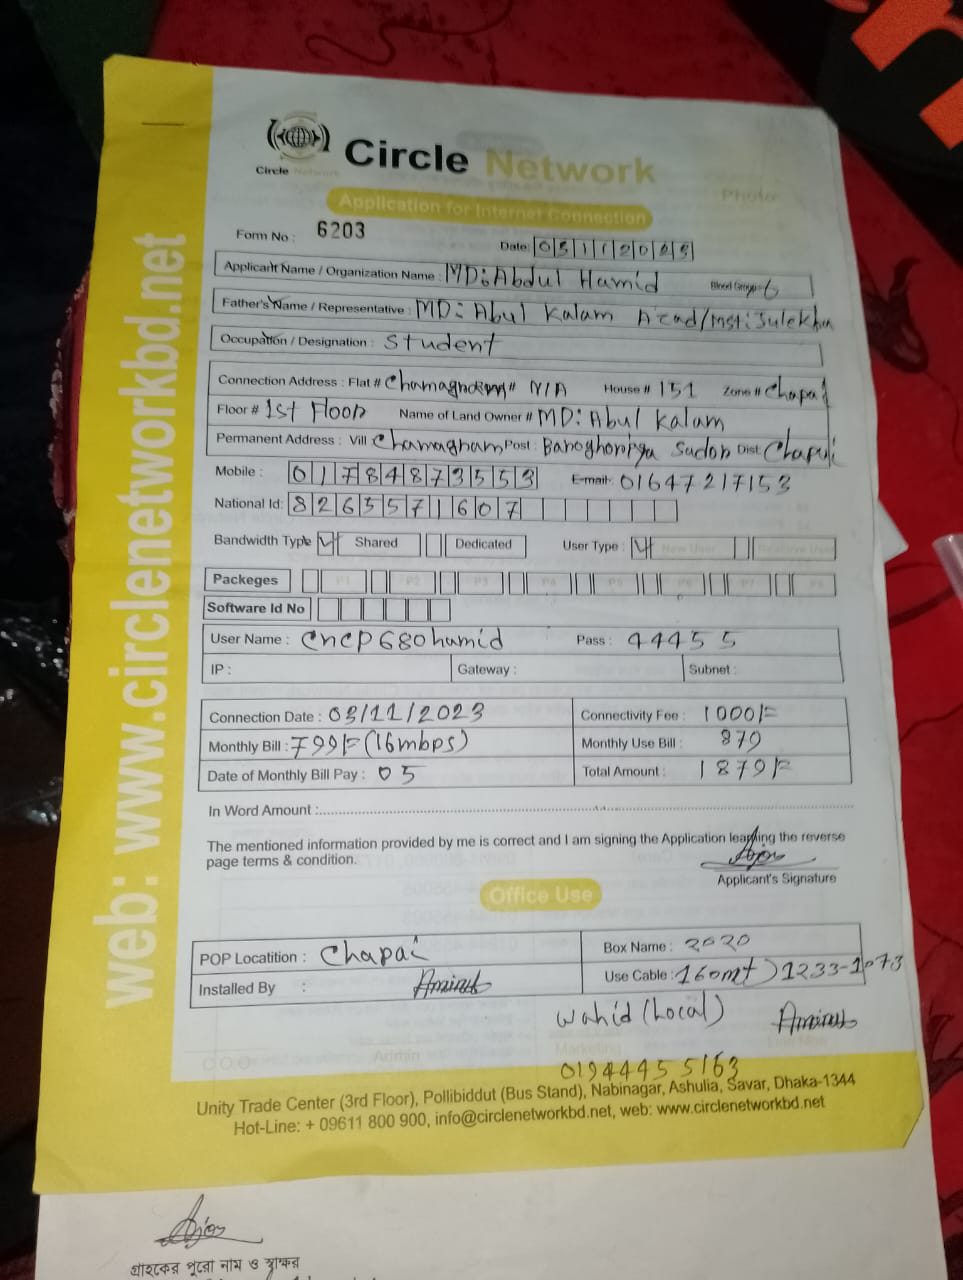 Circle Network
Circle Network
Photo
Application for Internet Connection
Form No : 6203
Date: 03112023
Applicant Name / Organization Name : MD: Abdul Hamid Blood Group:
Father's Name / Representative : MD: Abul Kalam Azad/Mst: Julekha
Occupation / Designation : Student
Connection Address : Flat # N/A House # 151 Zone # Chapai
Floor # 1st Floor Name of Land Owner # MD: Abul Kalam
Permanent Address : Vill Chamagram Post : Baroghoriya Sador Dist: Chapai
Mobile : 01784873553 E-mail: 01647217153
National Id: 8265571607
Bandwidth Type Shared Dedicated User Type : New User
Packeges P1 P2 P3 P4 P5 P6 P7 P8
Software Id No
User Name : cncp680hamid Pass : 44455
IP : Gateway : Subnet :
Connection Date : 03/11/2023 Connectivity Fee : 1000/=
Monthly Bill : 799/= (16mbps) Monthly Use Bill : 879
Date of Monthly Bill Pay : 05 Total Amount : 1879/=
In Word Amount :
The mentioned information provided by me is correct and I am signing the Application learning the reverse
page terms & condition.
Applicant's Signature
Office Use
POP Locatition : Chapai Box Name : 2020
Installed By : Aminul Use Cable : 160mt) 1233-1073
Wahid (Local) Aminul
C.O.O Admin Marketing
01944455163
Unity Trade Center (3rd Floor), Pollibiddut (Bus Stand), Nabinagar, Ashulia, Savar, Dhaka-1344
Hot-Line: + 09611 800 900, info@circlenetworkbd.net, web: www.circlenetworkbd.net
web: www.circlenetworkbd.net
গ্রাহকের পুরো নাম ও স্বাক্ষর